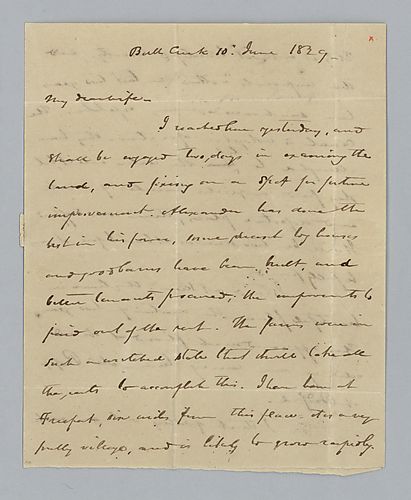 Bull Creek 10th June 1829—
My dear wife—
I reached here yesterday, and
shall be engaged two days in examining the
land, and fixing on a spot for future
improvement. Alexander has done the
best in his power, some decent log houses
and good barns have been built, and
better tenants procured, the improvements to
paid out of the rent. The farms were in
such a wretched state that it will take all
the rents to accomplish this. I have been at
Freeport, six miles from this place. It is a very
pretty village, and is likely to grow rapidly.